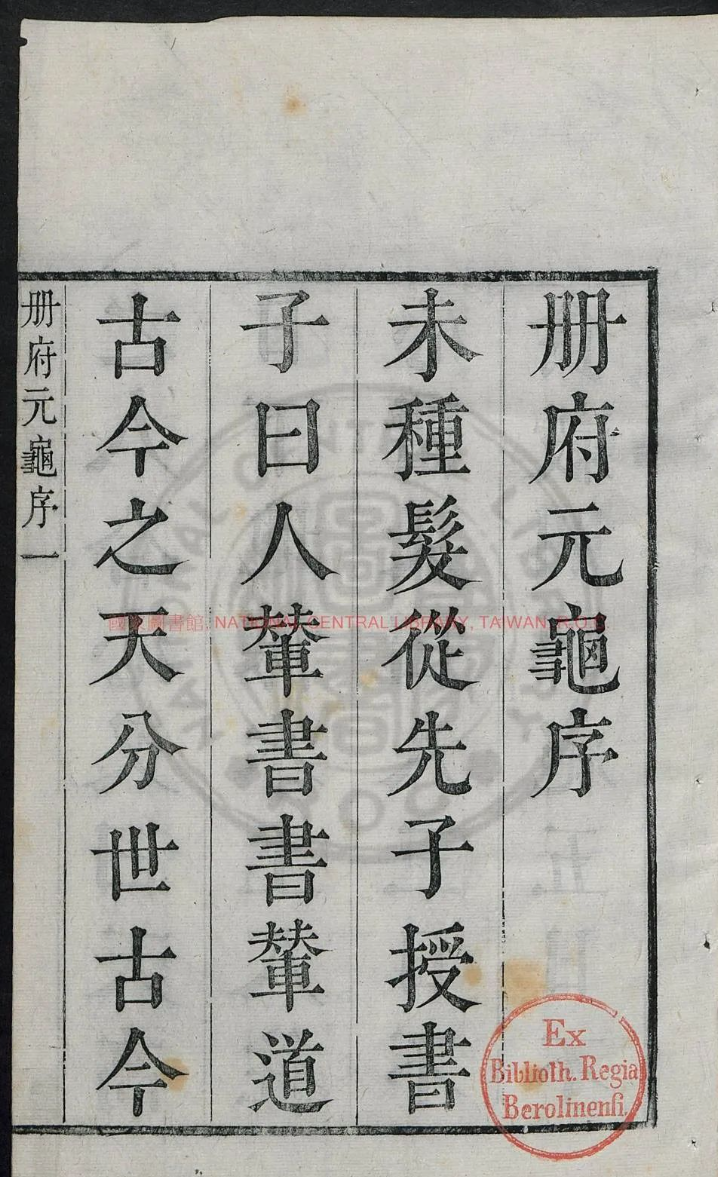 册府元龜序
未種髮從先子授書
子曰人輦書書輦道
古今之天分世古今
册府元龜序 一
國家圖書館, NATIONAL CENTRAL LIBRARY, TAIWAN, R.O.C
Ex
Biblioth. Regia
Berolinenſi.